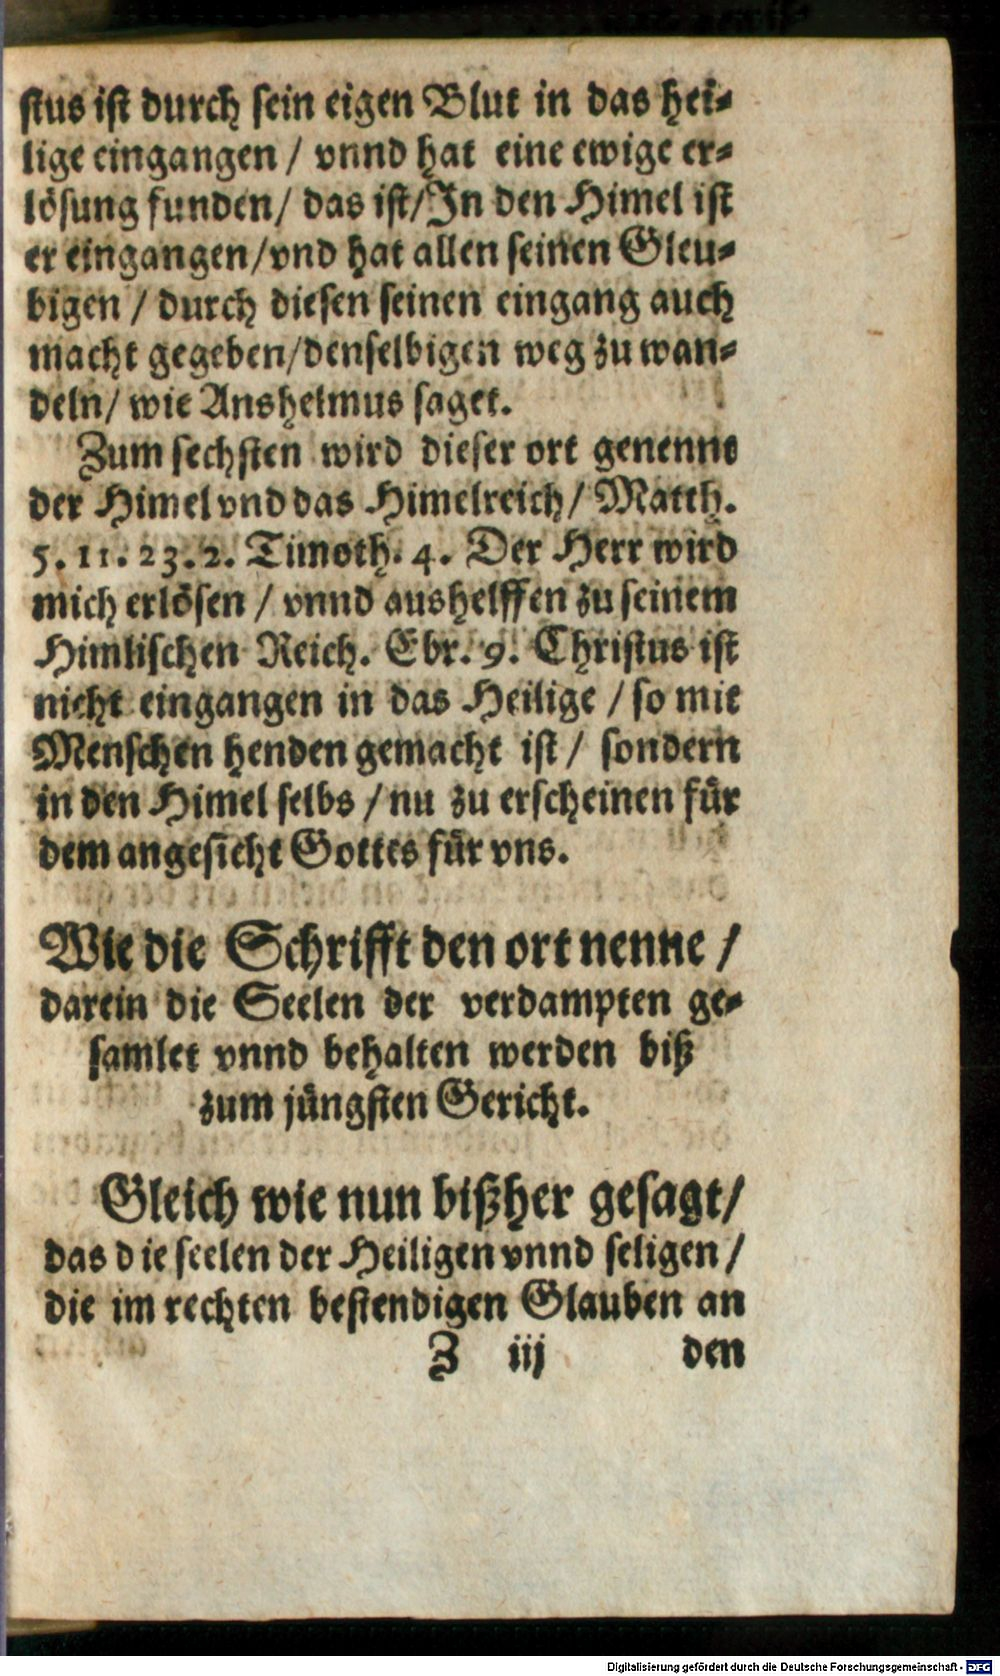 stus ist durch sein eigen Blut in das hei-
lige eingangen / vnnd hat eine ewige er-
lösung funden / das ist / In den Himel ist
er eingangen / vnd hat allen seinen Gleu-
bigen / durch diesen seinen eingang auch
macht gegeben / denselbigen weg zu wan-
deln / wie Anshelmus saget.
Zum sechsten wird dieser ort genennt
der Himel vnd das Himelreich / Matth.
5. 11. 23. 2. Timoth. 4. Der Herr wird
mich erlösen / vnnd aushelffen zu seinem
Himlischen Reich. Ebr. 9. Christus ist
nicht eingangen in das Heilige / so mit
Menschen henden gemacht ist / sondern
in den Himel selbs / nu zu erscheinen für
dem angesicht Gottes für vns.
Wie die Schrifft den ort nenne /
darein die Seelen der verdampten ge-
samlet vnnd behalten werden biß
zum jüngsten Gericht.
Gleich wie nun bißher gesagt /
das die seelen der Heiligen vnnd seligen /
die im rechten bestendigen Glauben an
Z iij den
Digitalisierung gefördert durch die Deutsche Forschungsgemeinschaft - DFG